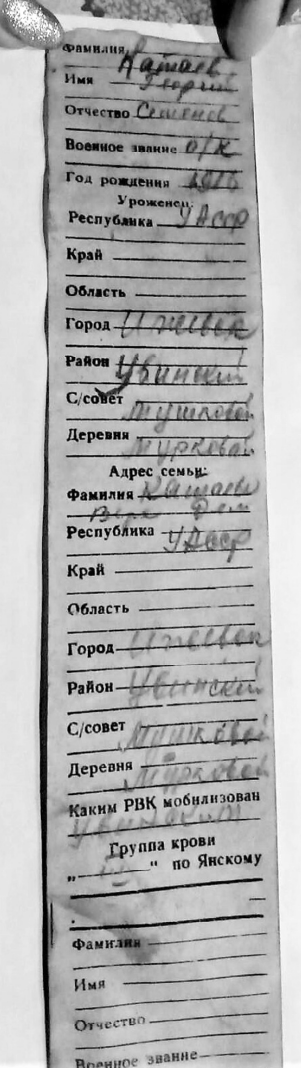 Фамилия Катаев
Имя Георгий
Отчество Семенов
Военное звание о/к
Год рождения
Уроженец:
Республика УАССР
Край
Область
Город Ижевск
Район Увинский
С/совет Мушковой
Деревня Мурковай
Адрес семьи:
Фамилия Катаевы
Вера Дем
Республика УАССР
Край
Область
Город Ижевск
Район Увинский
С/совет Мушковой
Деревня Мурковой
Каким РВК мобилизован
Увинским
Группа крови
„ " по Янскому
Фамилия
Имя
Отчество
Военное звание